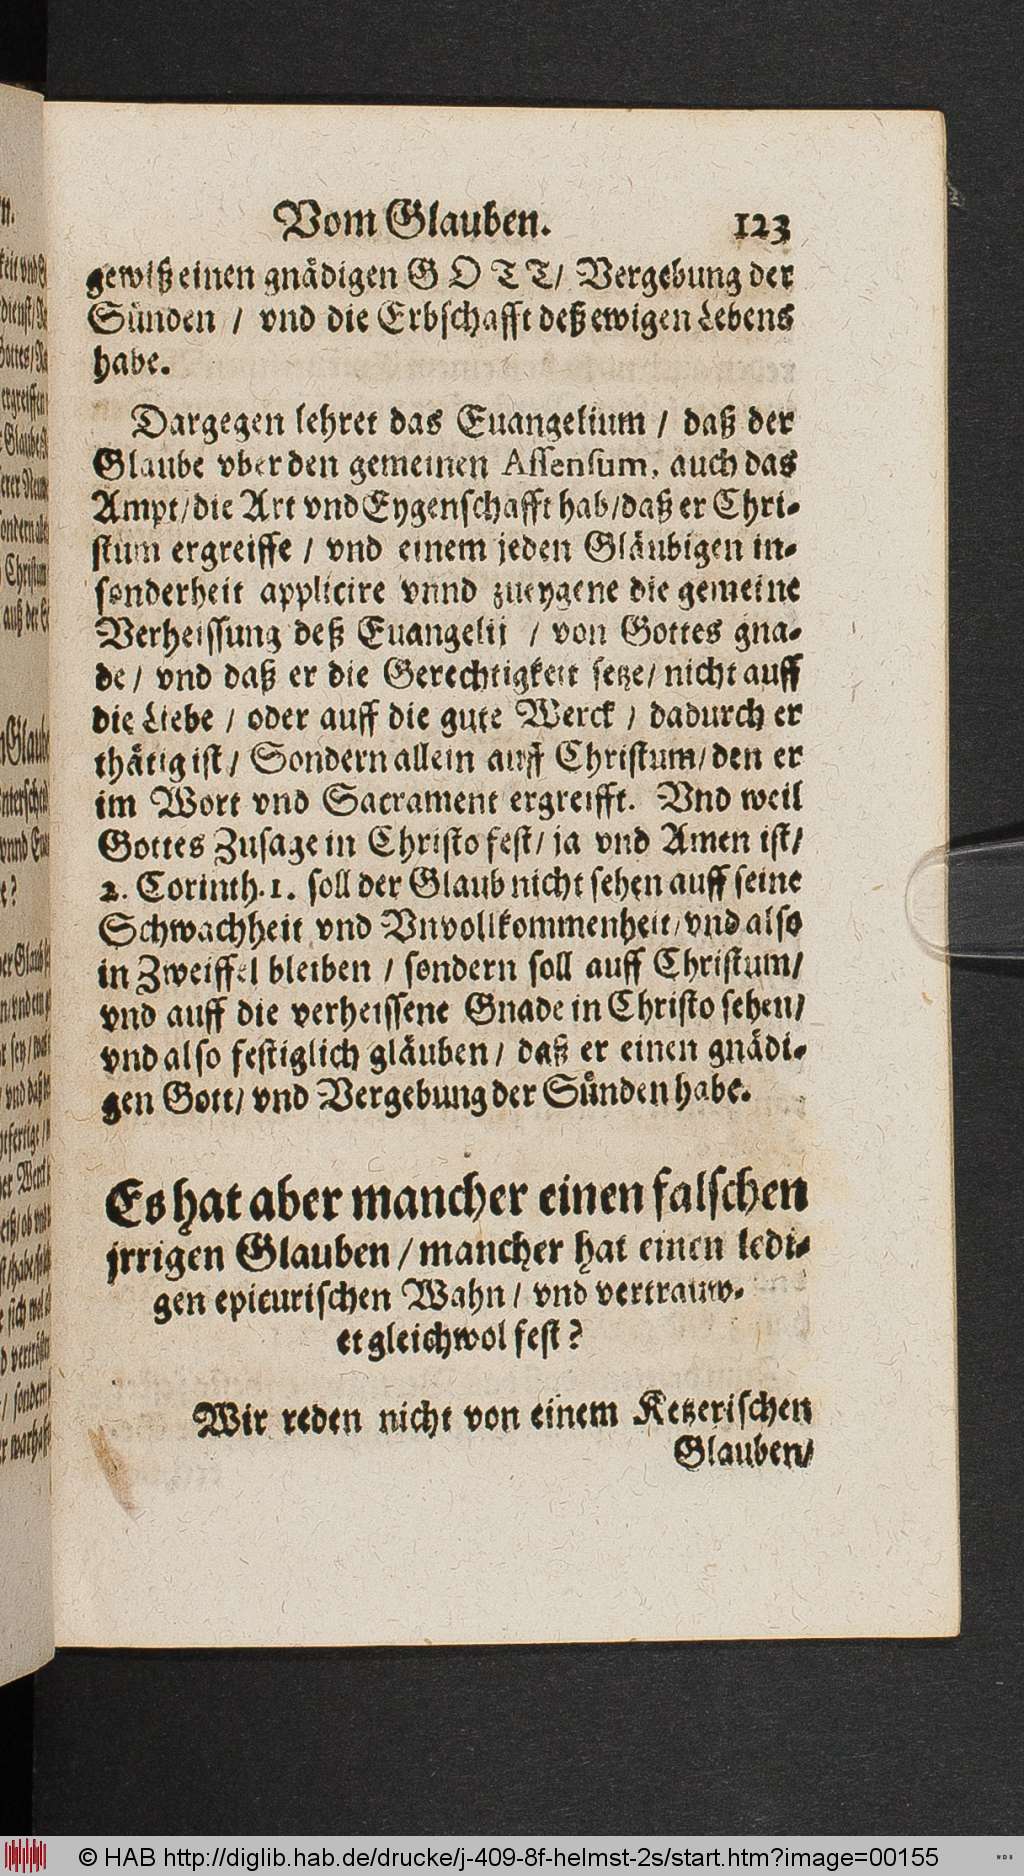 Vom Glauben. 123
gewiß einen gnädigen GOTT/ Vergebung der
Sünden / vnd die Erbschafft deß ewigen Lebens
habe.
Dargegen lehret das Euangelium / daß der
Glaube vber den gemeinen Assensum, auch das
Ampt/die Art vnd Eygenschafft hab/daß er Chri-
stum ergreiffe / vnd einem jeden Gläubigen in-
sonderheit applicire vnnd zueygene die gemeine
Verheissung deß Euangelij / von Gottes gna-
de / vnd daß er die Gerechtigkeit setze/ nicht auff
die Liebe / oder auff die gute Werck / dadurch er
thätig ist / Sondern allein auff Christum/ den er
im Wort vnd Sacrament ergreifft. Vnd weil
Gottes Zusage in Christo fest/ ja vnd Amen ist/
2. Corinth. 1. soll der Glaub nicht sehen auff seine
Schwachheit vnd Vnvollkommenheit/ vnd also
in Zweiffel bleiben / sondern soll auff Christum/
vnd auff die verheissene Gnade in Christo sehen/
vnd also festiglich gläuben / daß er einen gnädi-
gen Gott/ vnd Vergebung der Sünden habe.
Es hat aber mancher einen falschen
jrrigen Glauben / mancher hat einen ledi-
gen epicurischen Wahn / vnd vertrauw-
et gleichwol fest?
Wir reden nicht von einem Ketzerischen
Glauben/
© HAB http://diglib.hab.de/drucke/j-409-8f-helmst-2s/start.htm?image=00155